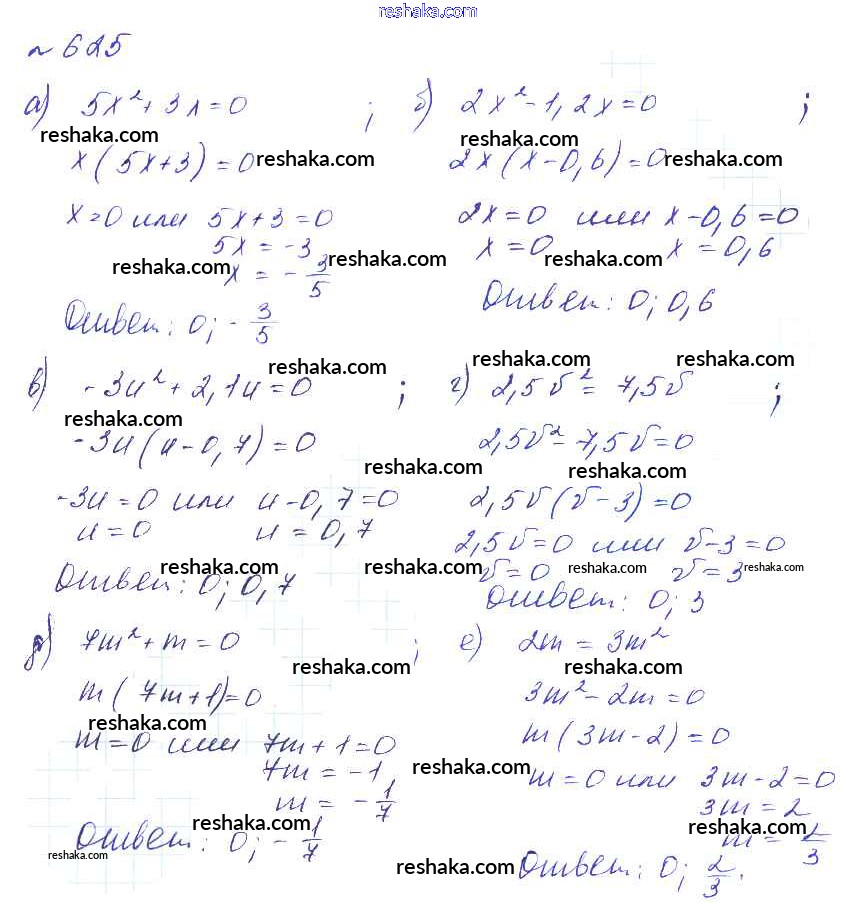 reshaka.com
№ 625
а) 5x² + 3x = 0 ;
reshaka.com
x(5x+3) = 0 reshaka.com
x=0 или 5x+3=0
5x = -3
reshaka.com x = -3/5 reshaka.com
Ответ: 0; -3/5
б) 2x² - 1,2x = 0 ;
reshaka.com
2x(x-0,6) = 0 reshaka.com
2x=0 или x-0,6=0
x=0 x=0,6
reshaka.com
Ответ: 0; 0,6
reshaka.com
в) -3u² + 2,1u = 0 ;
reshaka.com
-3u(u-0,7) = 0
reshaka.com
-3u=0 или u-0,7=0
u=0 u=0,7
reshaka.com reshaka.com
Ответ: 0; 0,7
reshaka.com reshaka.com
г) 2,5v² = 7,5v ;
2,5v² - 7,5v = 0
reshaka.com
2,5v(v-3) = 0
2,5v=0 или v-3=0
v=0 reshaka.com v=3 reshaka.com
Ответ: 0; 3
д) 7m² + m = 0 ;
reshaka.com
m(7m+1)=0
reshaka.com
m=0 или 7m+1=0
7m = -1
reshaka.com
m = -1/7
reshaka.com
Ответ: 0; -1/7
reshaka.com
е) 2m = 3m²
reshaka.com
3m² - 2m = 0
m(3m-2) = 0
m=0 или 3m-2=0
3m = 2
reshaka.com
m = 2/3
reshaka.com
Ответ: 0; 2/3.